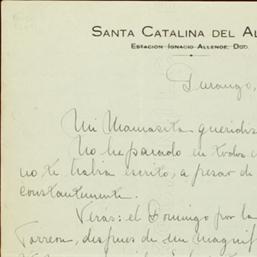 SANTA CATALINA DEL AL
ESTACION IGNACIO ALLENDE, DGO.
Durango,
Mi Mamasita queridis
No he parado en todos e
no te habia escrito, a pesar de
constantemente.
Verás: el Domingo por la
Torreon, despues de un magnif